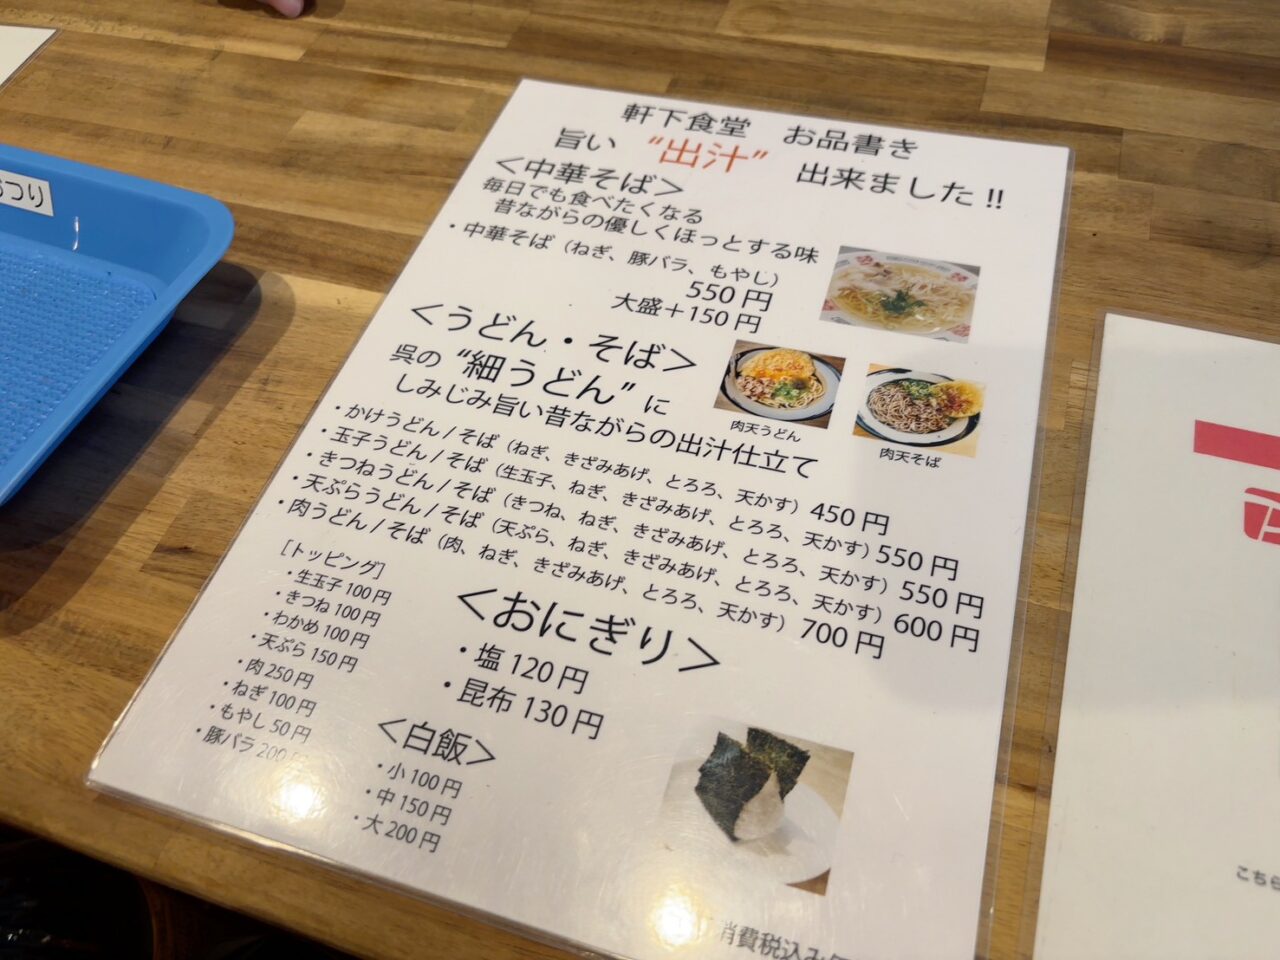 軒下食堂　お品書き
旨い　“出汁”　出来ました!!
＜中華そば＞
毎日でも食べたくなる
昔ながらの優しくほっとする味
・中華そば（ねぎ、豚バラ、もやし）
550円
大盛＋150円
＜うどん・そば＞
呉の“細うどん”に
しみじみ旨い昔ながらの出汁仕立て
肉天うどん
肉天そば
・かけうどん/そば（ねぎ、きざみあげ、とろろ、天かす）450円
・玉子うどん/そば（生玉子、ねぎ、きざみあげ、とろろ、天かす）550円
・きつねうどん/そば（きつね、ねぎ、きざみあげ、とろろ、天かす）550円
・天ぷらうどん/そば（天ぷら、ねぎ、きざみあげ、とろろ、天かす）600円
・肉うどん/そば（肉、ねぎ、きざみあげ、とろろ、天かす）700円
［トッピング］
・生玉子100円
・きつね100円
・わかめ100円
・天ぷら150円
・肉250円
・ねぎ100円
・もやし50円
・豚バラ200円
＜おにぎり＞
・塩120円
・昆布130円
＜白飯＞
・小100円
・中150円
・大200円
消費税込み
つり
こちら